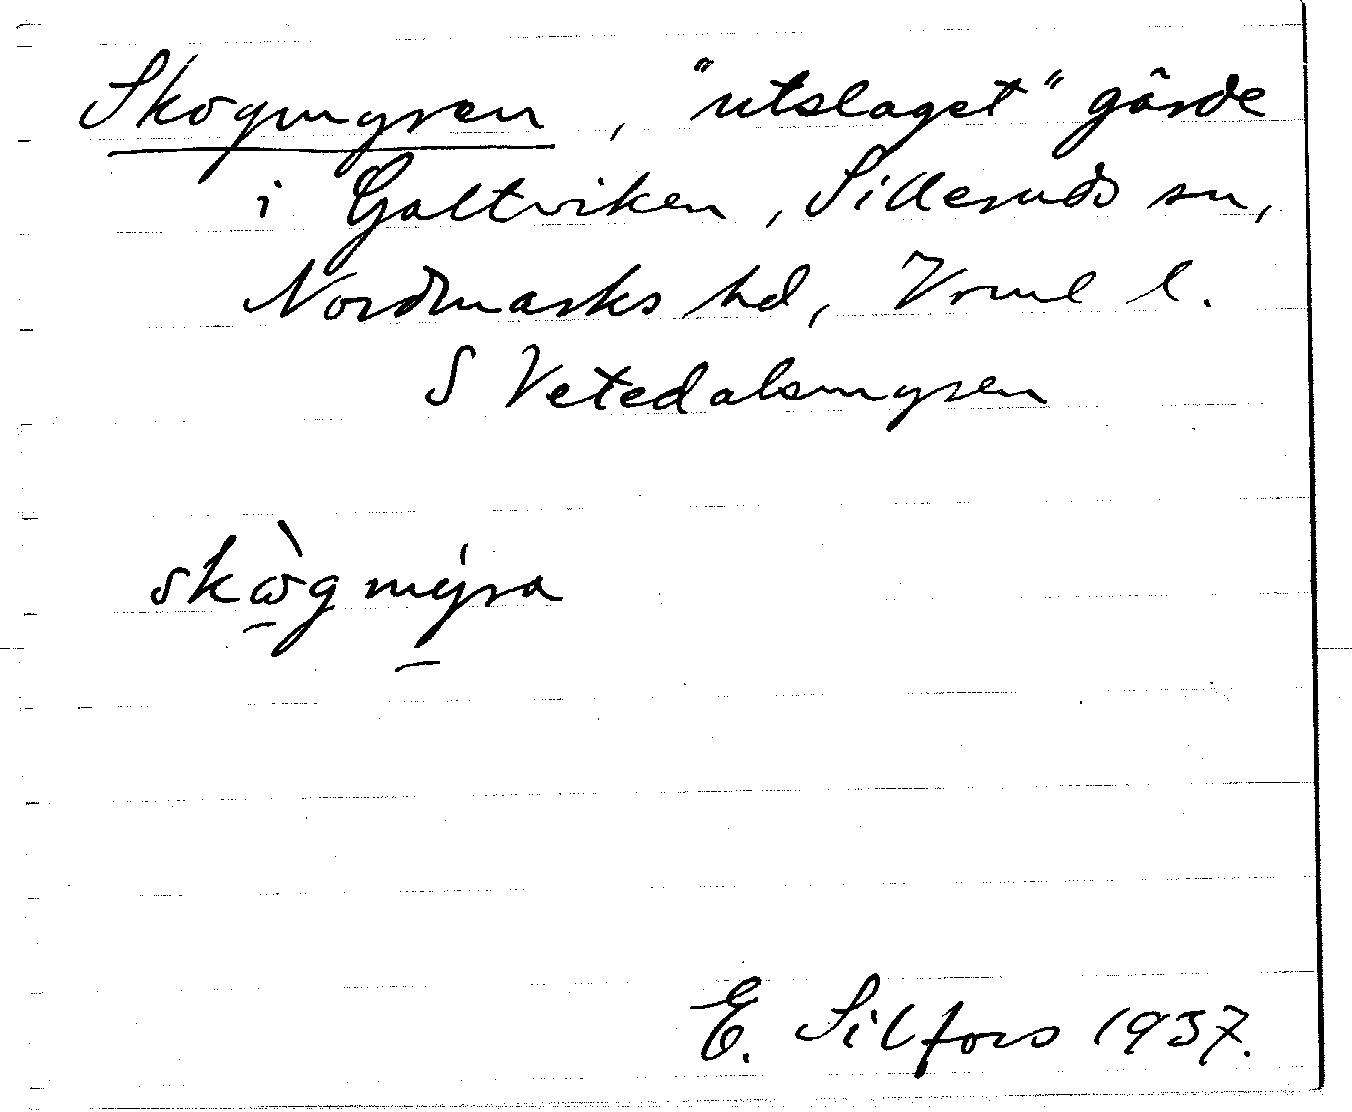 Skogmyren, "utslaget" gärde
i Galtviken, Silleruds sn,
Nordmarks hd, Vrml l.
S Vetedalsmyren
skògmýra
E. Silfors 1937.